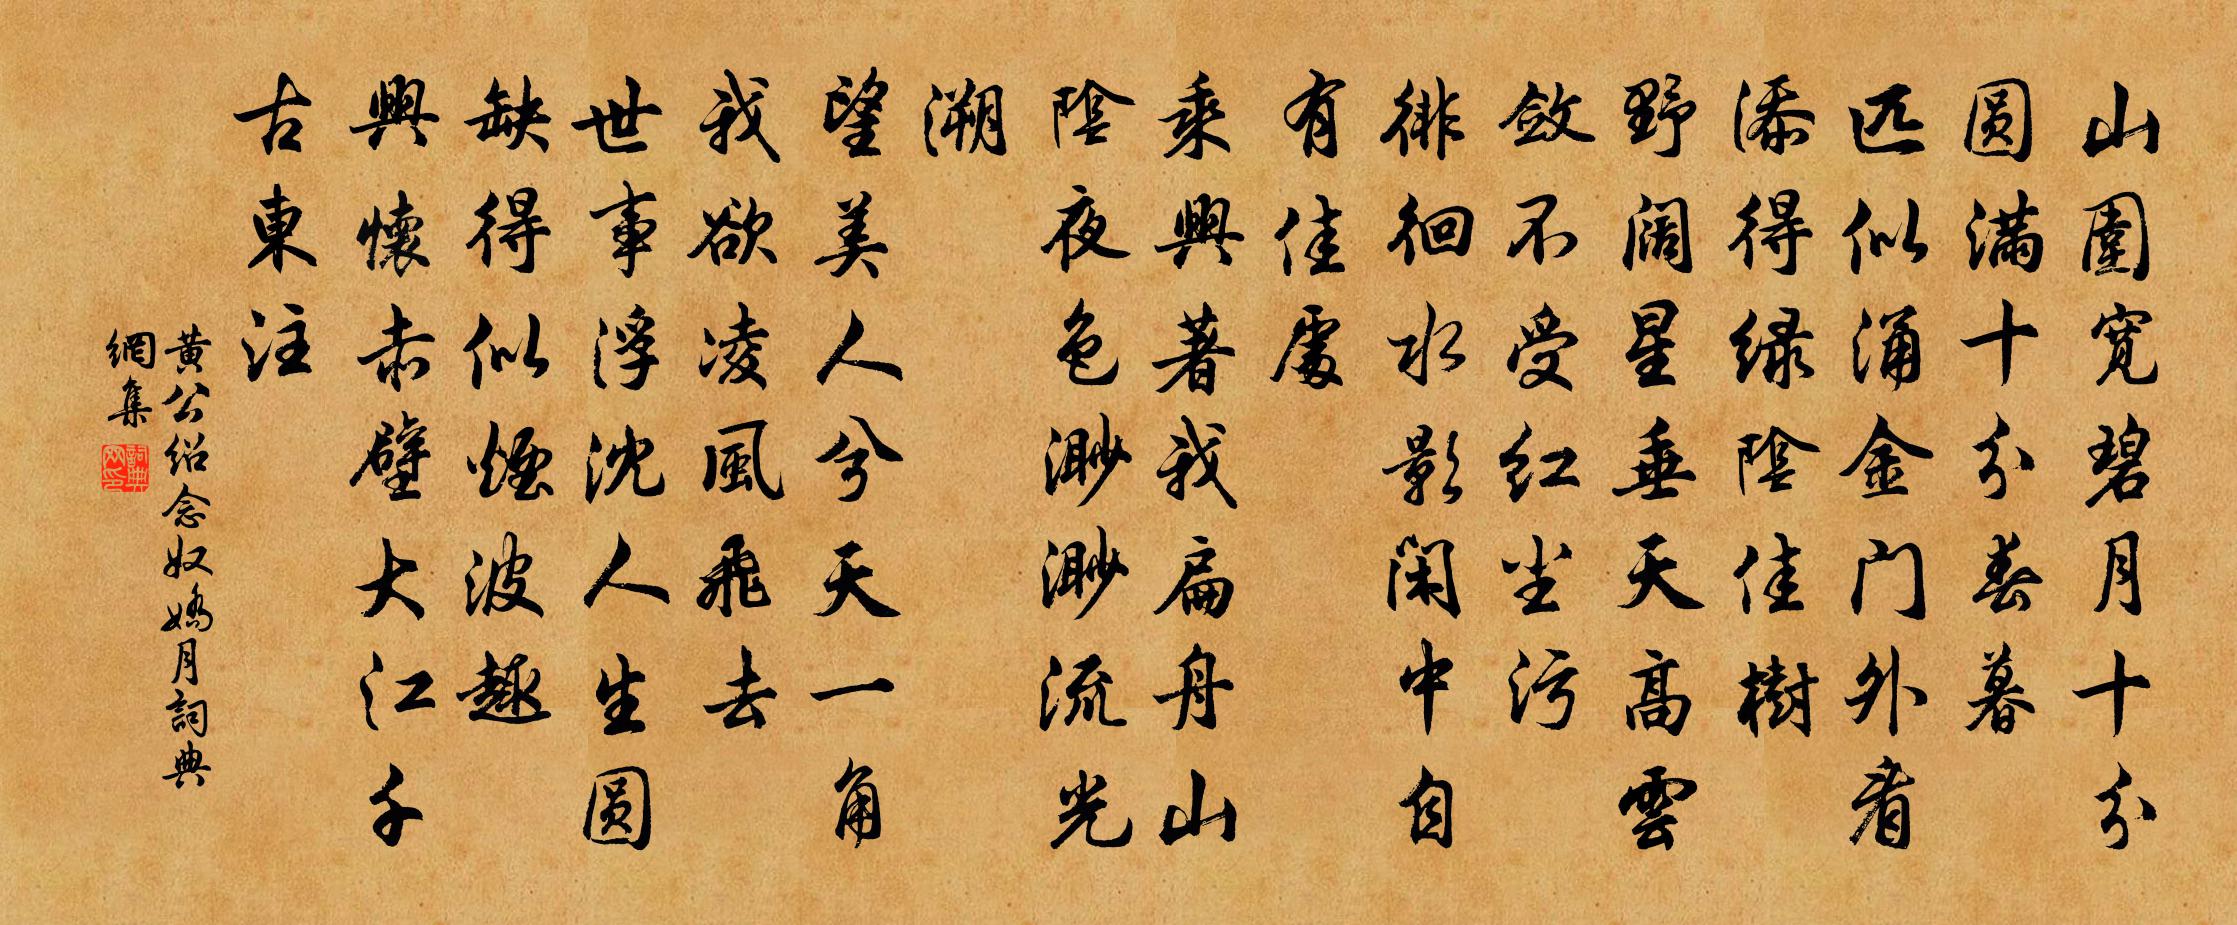 山圍寬碧月十分
圆满十分春暮
匹似涌金门外看
添得绿陰佳樹
野阔星垂天高雲
斂不受红尘污
徘徊水影闲中自
有佳處
乘興著我扁舟山
陰夜色渺渺流光
溯
望美人兮天一角
我欲凌風飛去
世事浮沈人生圆
缺得似煙波趣
興懷赤壁大江千
古東注
黄公绍念奴嬌月詞典
網集
詞典
网印